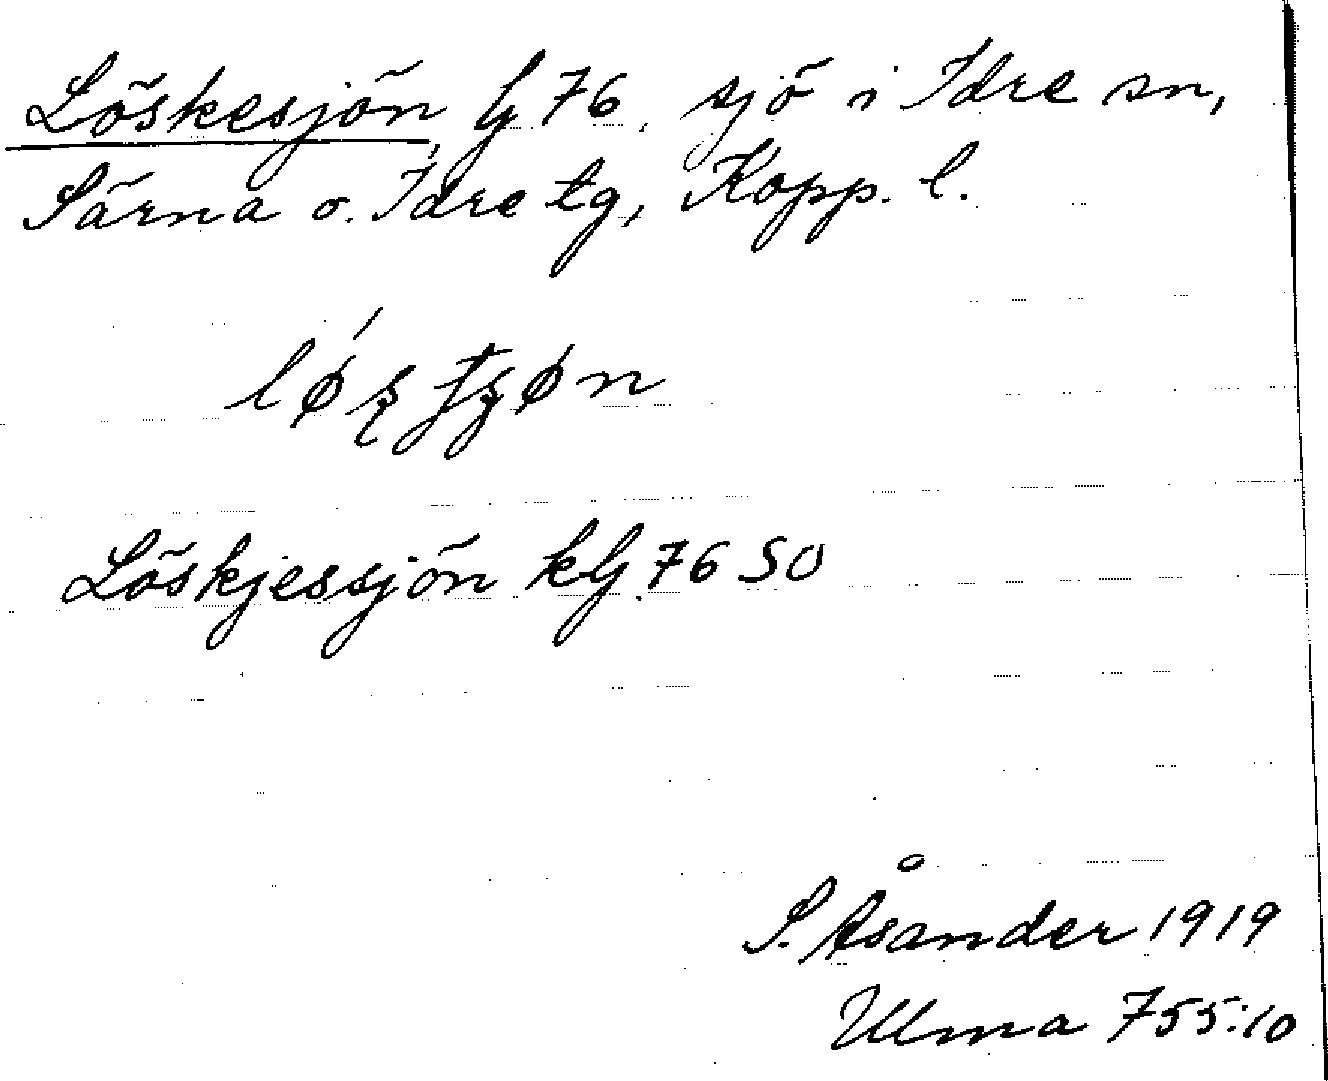 Löskesjön, G 76, sjö i Idre sn,
Särna o. Idre tg, Kopp. l.
Löskjessjön kG 76 SO
S. Åsander 1919
Ulma 755:10